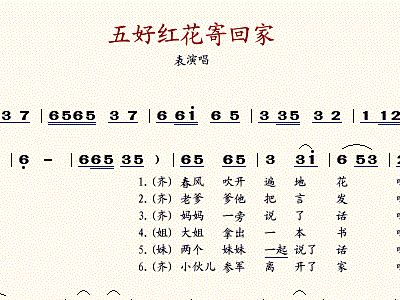 五好红花寄回家
袁演唱
3 7 | 6565 3 7 | 6 6i 6 5 | 3 35 3 2 | 1 12
| 6 – | 665 35 ) | 65 65 | 3 3i | 6 53 |
1.(齐) 春风 吹开 遍 地 花
2.(齐) 老爹 爹他 把 言 发
3.(齐) 妈妈 一旁 说 了 话
4.(姐) 大姐 拿出 一 本 书
5.(妹) 两个 妹妹 一起 说了 话
6.(齐) 小伙儿 参军 离 开了 家